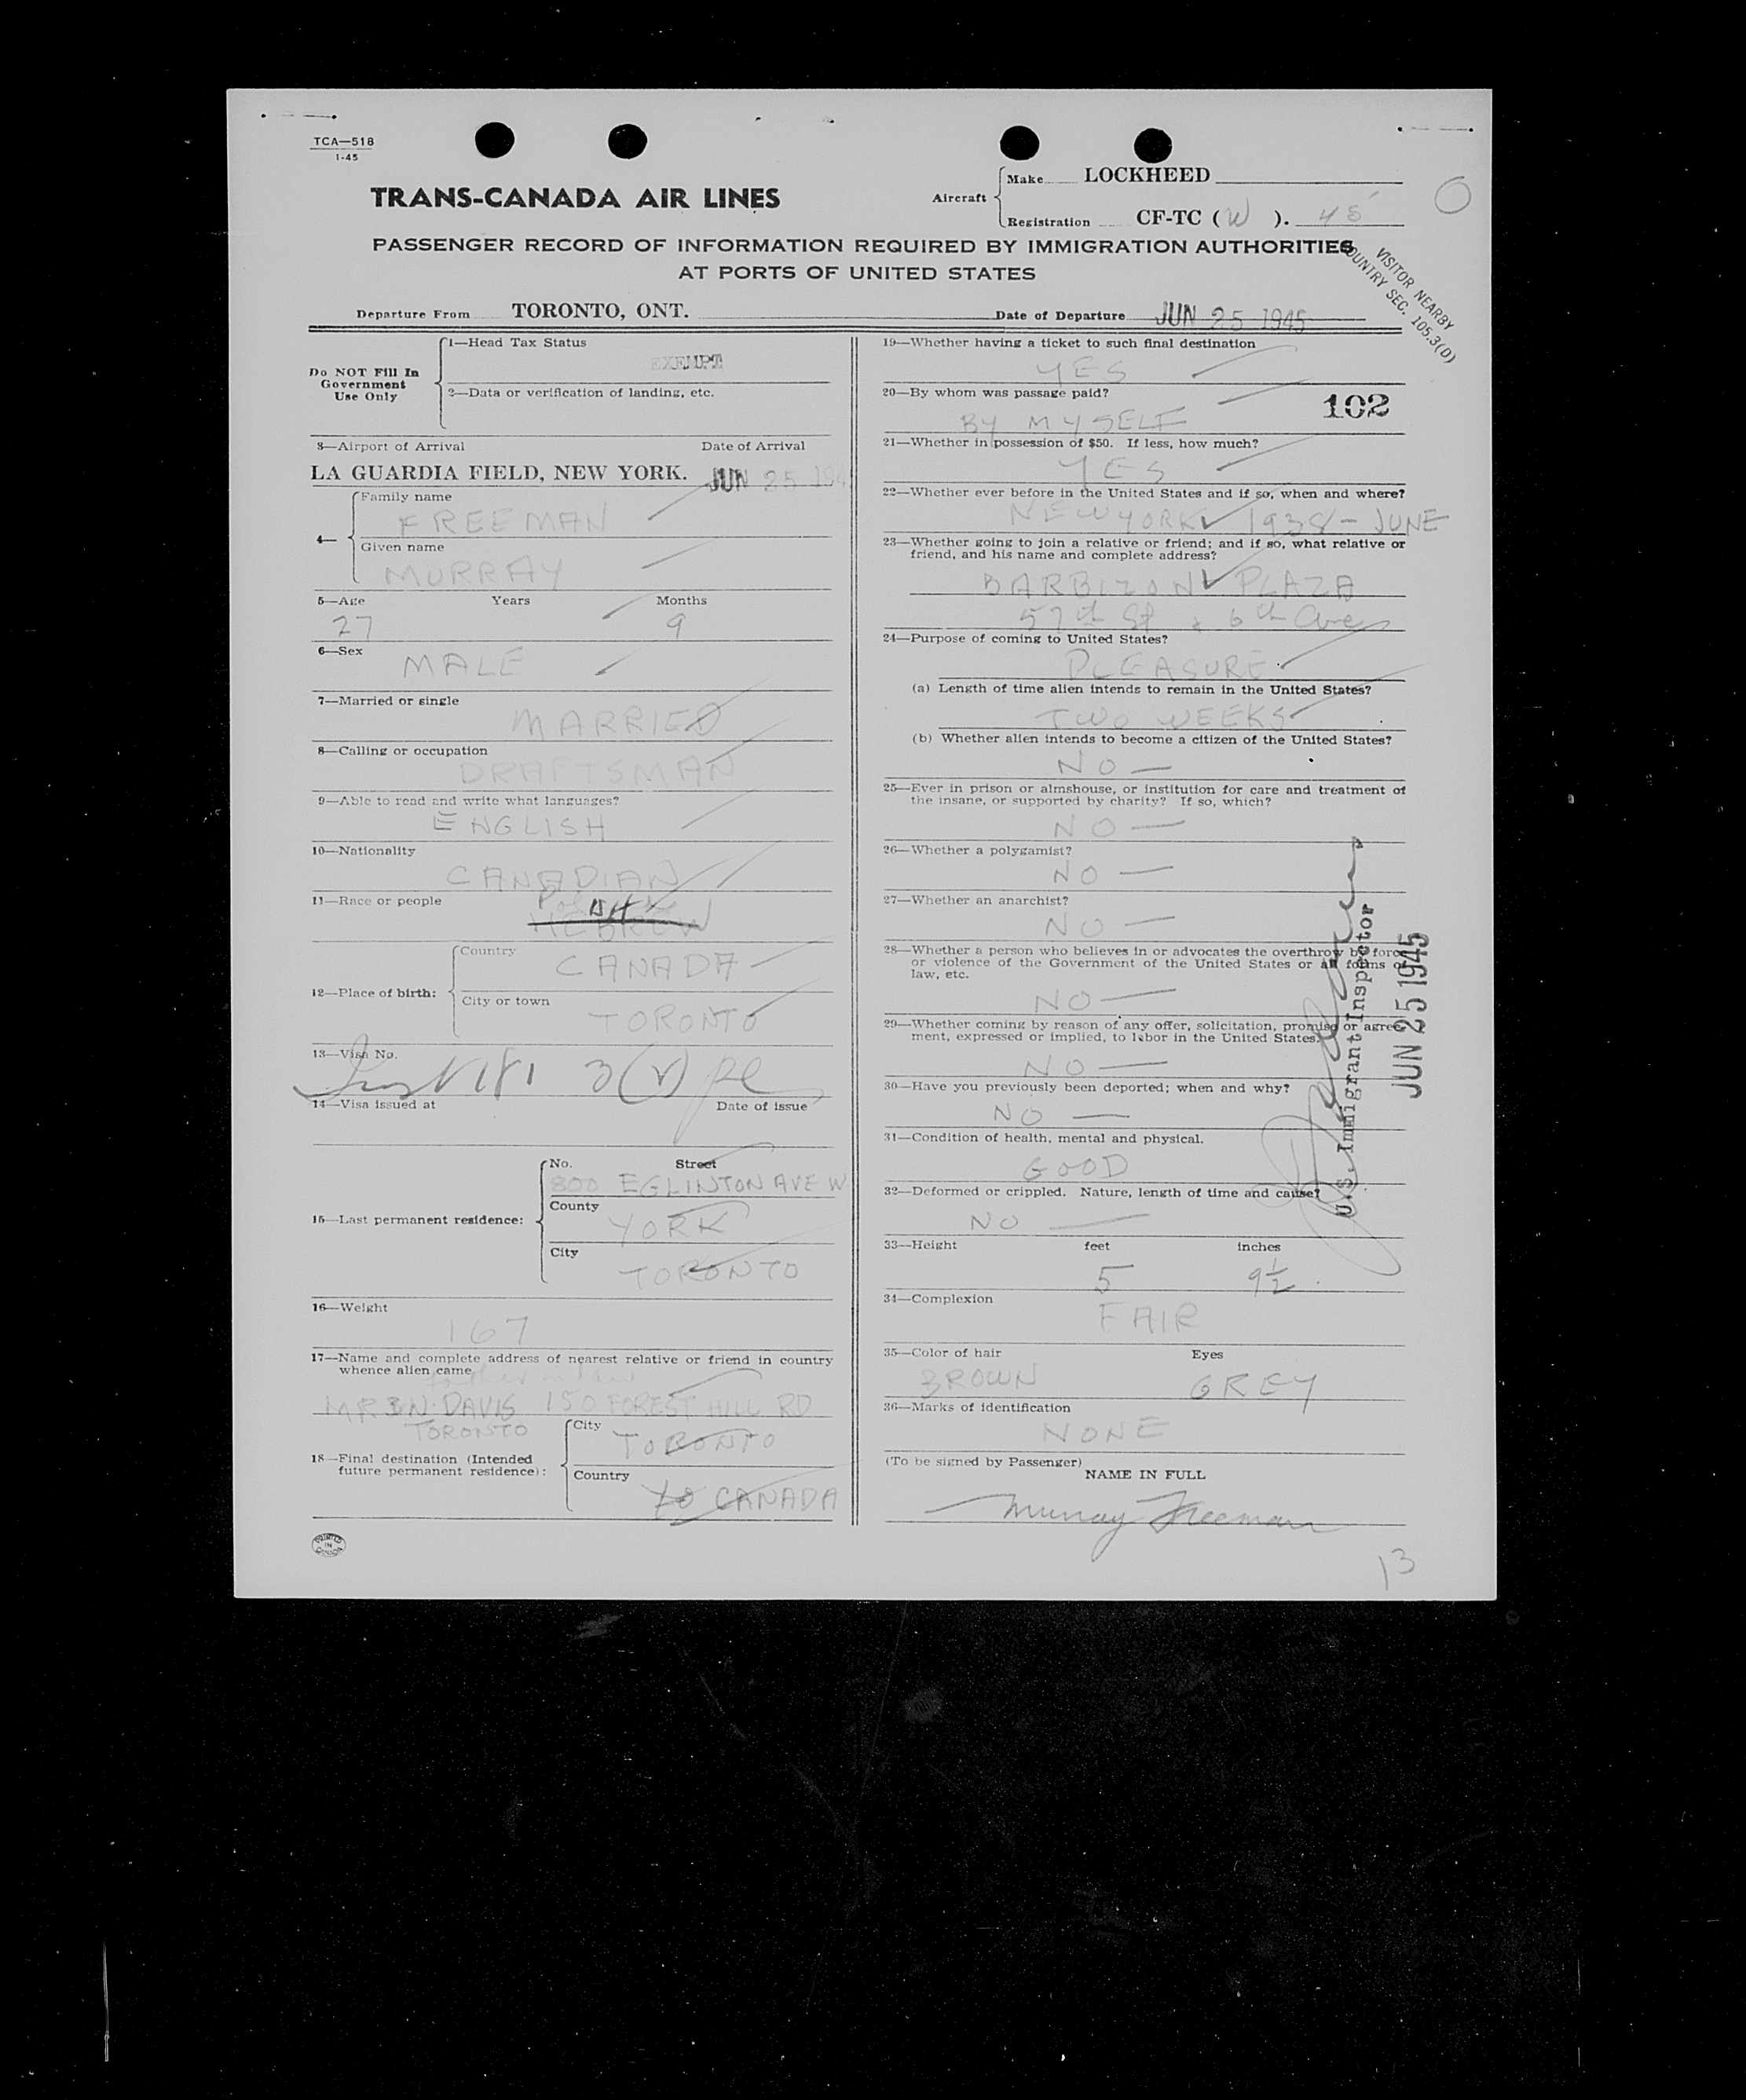 TCA—518
1-45
TRANS-CANADA AIR LINES
Aircraft
Make LOCKHEED
Registration CF-TC ( W ). 48
PASSENGER RECORD OF INFORMATION REQUIRED BY IMMIGRATION AUTHORITIES
AT PORTS OF UNITED STATES
VISITOR NEARBY
COUNTRY SEC. 105.3(D)
Departure From TORONTO, ONT. Date of Departure JUN 25 1945
Do NOT Fill In
Government
Use Only
1—Head Tax Status
EXEMPT
2—Data or verification of landing, etc.
3—Airport of Arrival Date of Arrival
LA GUARDIA FIELD, NEW YORK. JUN 25 194
4—
Family name
FREEMAN
Given name
MURRAY
5—Age Years Months
27 9
6—Sex
MALE
7—Married or single
MARRIED
8—Calling or occupation
DRAFTSMAN
9—Able to read and write what languages?
ENGLISH
10—Nationality
CANADIAN
11—Race or people
HEBREW
12—Place of birth:
Country
CANADA
City or town
TORONTO
13—Visa No.
3(V)
14—Visa issued at Date of issue
15—Last permanent residence:
No. Street
800 EGLINTON AVE W
County
YORK
City
TORONTO
16—Weight
167
17—Name and complete address of nearest relative or friend in country
whence alien came
father in law
MR DAVIS 150 FOREST HILL RD
TORONTO
18—Final destination (Intended
future permanent residence):
City
TORONTO
Country
CANADA
PRINTED
IN
CANADA
19—Whether having a ticket to such final destination
YES
20—By whom was passage paid?
BY MYSELF
102
21—Whether in possession of $50. If less, how much?
YES
22—Whether ever before in the United States and if so, when and where?
NEW YORK 1938 - JUNE
23—Whether going to join a relative or friend; and if so, what relative or
friend, and his name and complete address?
BARBIZON PLAZA
57th St & 6th Ave
24—Purpose of coming to United States?
PLEASURE
(a) Length of time alien intends to remain in the United States?
TWO WEEKS
(b) Whether alien intends to become a citizen of the United States?
NO —
25—Ever in prison or almshouse, or institution for care and treatment of
the insane, or supported by charity? If so, which?
NO —
26—Whether a polygamist?
NO —
27—Whether an anarchist?
NO —
28—Whether a person who believes in or advocates the overthrow by force
or violence of the Government of the United States or all forms of
law, etc.
NO —
29—Whether coming by reason of any offer, solicitation, promise or agree-
ment, expressed or implied, to labor in the United States.
NO —
30—Have you previously been deported; when and why?
NO —
31—Condition of health, mental and physical.
GOOD
32—Deformed or crippled. Nature, length of time and cause?
NO —
U.S. Immigrant Inspector
JUN 25 1945
33—Height feet inches
5 9½
34—Complexion
FAIR
35—Color of hair Eyes
BROWN GREY
36—Marks of identification
NONE
(To be signed by Passenger)
NAME IN FULL
Murray Freeman
13